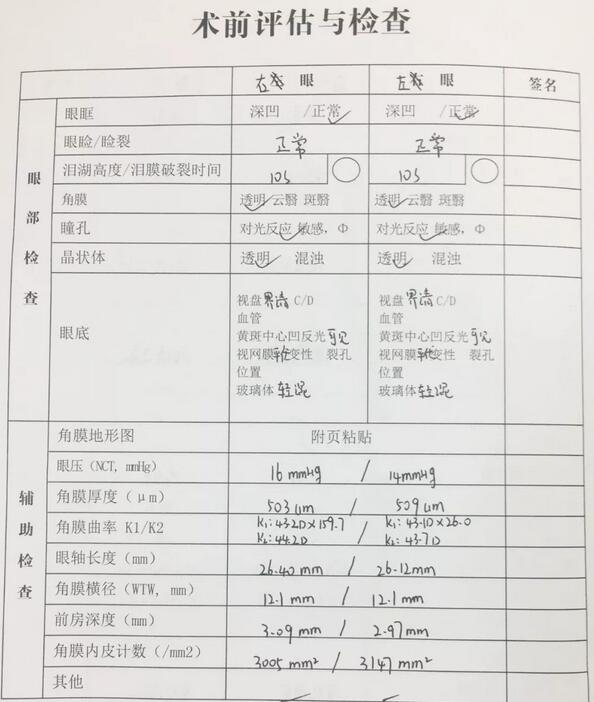 术前评估与检查
右眼 左眼 签名
眼部检查
眼眶 深凹 /正常 深凹 /正常
眼睑/睑裂 正常 正常
泪湖高度/泪膜破裂时间 10s 10s
角膜 透明 云翳 斑翳 透明 云翳 斑翳
瞳孔 对光反应 敏感，Φ 对光反应 敏感，Φ
晶状体 透明 混浊 透明 混浊
眼底
视盘 界清 C/D 视盘 界清 C/D
血管 血管
黄斑中心凹反光 可见 黄斑中心凹反光 可见
视网膜 变性 裂孔 视网膜 变性 裂孔
位置 位置
玻璃体 轻混 玻璃体 轻混
辅助检查
角膜地形图 附页粘贴
眼压（NCT, mmHg） 16 mmHg / 14mmHg
角膜厚度（μm） 503 μm / 509 μm
角膜曲率 K1/K2 K1: 43.2D×159.7 / K1: 43.1D×26.0
K2: 44.2D K2: 43.7D
眼轴长度（mm） 26.40 mm / 26.12mm
角膜横径（WTW, mm） 12.1 mm / 12.1 mm
前房深度（mm） 3.09 mm / 2.97mm
角膜内皮计数（/mm2） 3005 mm² / 3147 mm²
其他